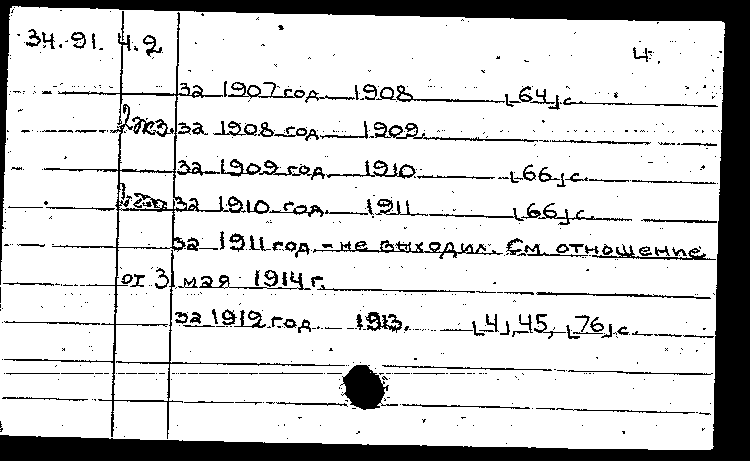 34.91.4.2 4.
за 1907 год. 1908 [64] с.
2 экз. за 1908 год 1909.
за 1909 год 1910 [66] с.
2 экз. за 1910 год. 1911 [66] с.
за 1911 год. - не выходил. См. отношение
от 31 мая 1914 г.
за 1912 год 1913. [4], 45, [76] с.